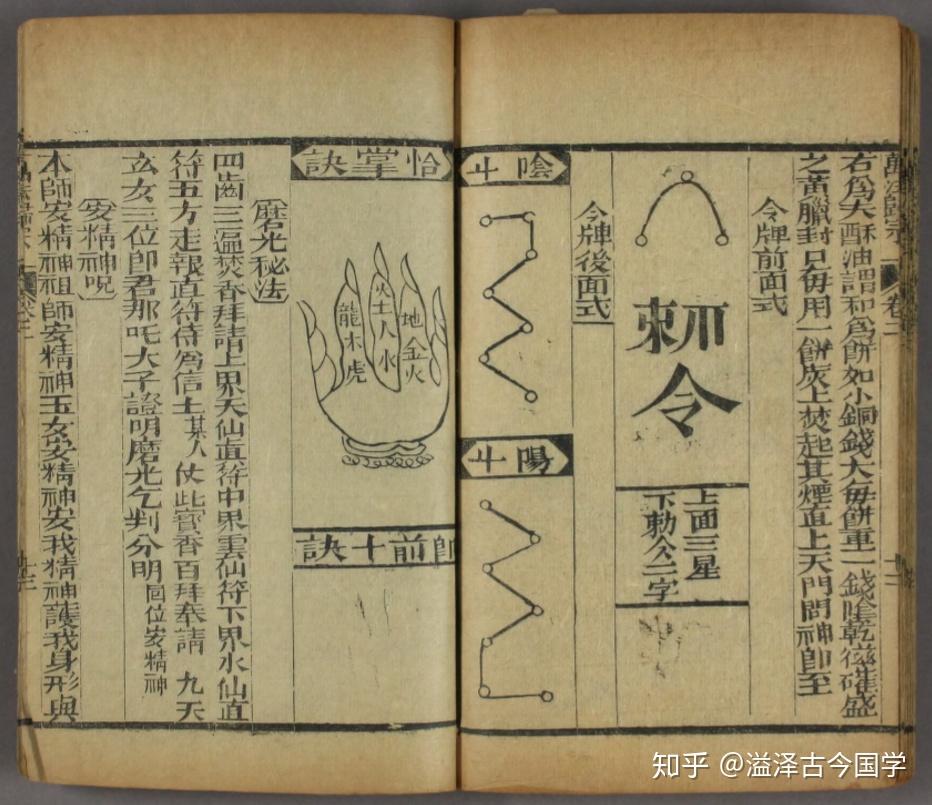 右爲大酥油調和爲餅如小銅錢大每餅重一錢陰乾磁礶盛
之黃臘封口每用一餅灰上焚起其煙直上天門問神卽至
令牌前面式
勑
令
上面三星
下勅令二字
令牌後面式
陰斗
陽斗
掐掌訣
地金火
火土人水
龍木虎
前十訣
磨光秘法
四齒三遍焚香拜請上界天仙直符中界雲仙符下界水仙直
符五方走報直符侍爲信士某人使此寳香百拜奉請 九天
玄女三位郎君那吒大子證明磨光乞判分明同位安精神
安精神呪
本師安精神祖師安精神玉女安精神安我精神護我身形與
知乎 @溢泽古今国学